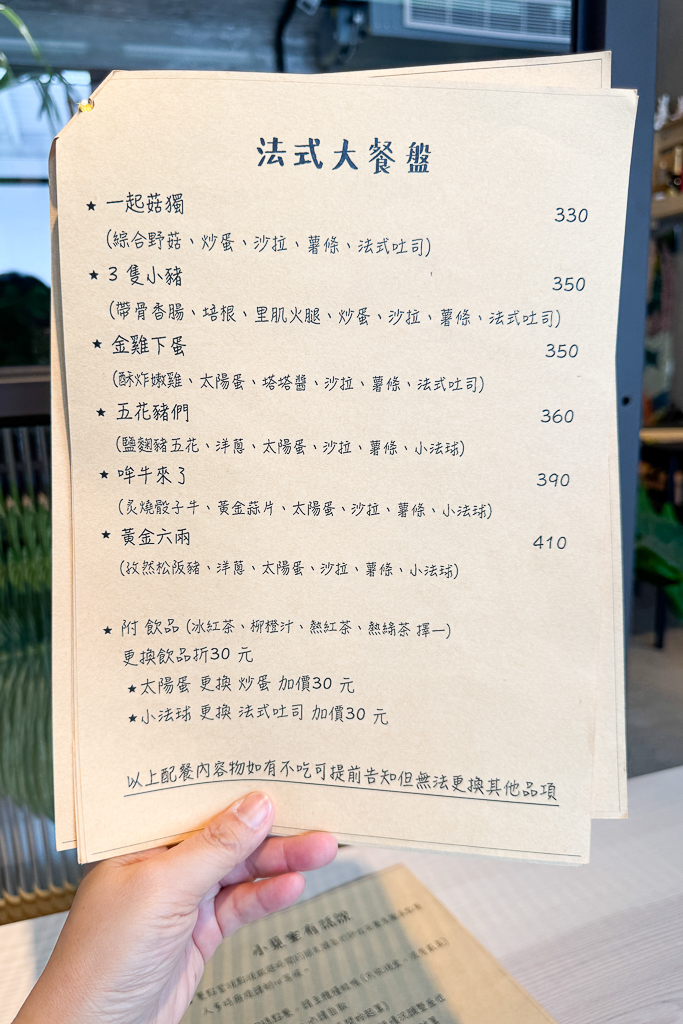 法式大餐盤
★ 一起菇獨 330
(綜合野菇、炒蛋、沙拉、薯條、法式吐司)
★ 3 隻小豬 350
(帶骨香腸、培根、里肌火腿、炒蛋、沙拉、薯條、法式吐司)
★ 金雞下蛋 350
(酥炸嫩雞、太陽蛋、塔塔醬、沙拉、薯條、法式吐司)
★ 五花豬們 360
(鹽麴豬五花、洋蔥、太陽蛋、沙拉、薯條、小法球)
★ 哞牛來了 390
(炙燒骰子牛、黃金蒜片、太陽蛋、沙拉、薯條、小法球)
★ 黃金六兩 410
(孜然松阪豬、洋蔥、太陽蛋、沙拉、薯條、小法球)
★ 附 飲品 (冰紅茶、柳橙汁、熱紅茶、熱綠茶 擇一)
更換飲品折30 元
★太陽蛋 更換 炒蛋 加價30 元
★小法球 更換 法式吐司 加價30 元
以上配餐內容物如有不吃可提前告知但無法更換其他品項